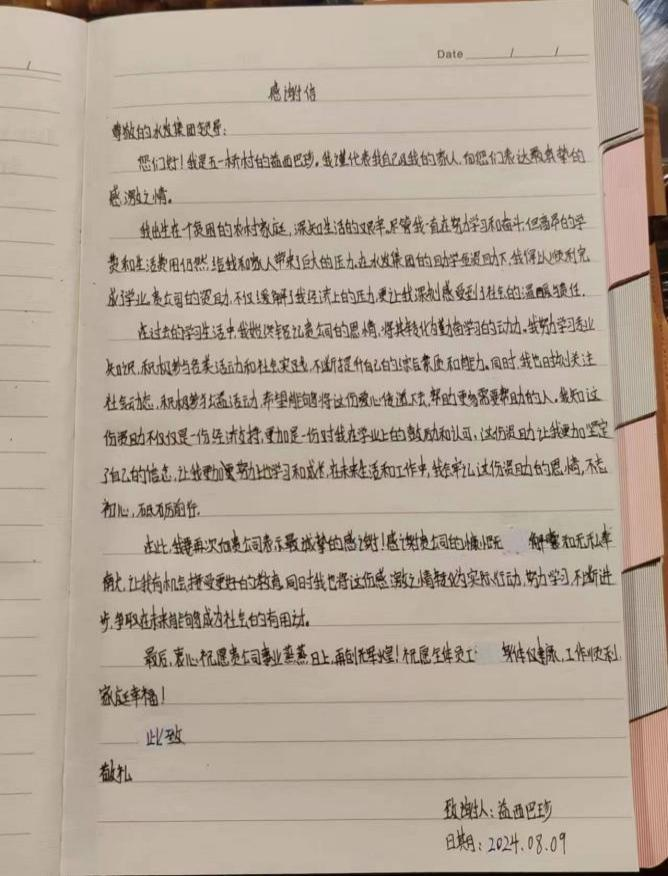 Date / /
感谢信
尊敬的水发集团领导:
您们好!我是五一桥村的益西巴珍。我谨代表我自己及我的家人,向您们表达最真挚的
感激之情。
我出生在一个贫困的农村家庭,深知生活的艰辛。尽管我一直在努力学习和奋斗,但高昂的学
费和生活费用仍然给我和家人带来了巨大的压力。在水发集团的助学金资助下,我得以顺利完
成了学业。贵公司的资助,不仅缓解了我经济上的压力,更让我深刻感受到了社会的温暖与责任。
在过去的学习生活中,我始终铭记贵公司的恩情,将其转化为勤奋学习的动力。我努力学习专业
知识,积极参与各类活动和社会实践,不断提升自己的综合素质和能力。同时,我也时刻关注
社会动态,积极参与公益活动,希望能够将这份爱心传递下去,帮助更多需要帮助的人。我知这
份资助不仅仅是一份经济支持,更加是一份对我在学业上的鼓励和认可,这份资助让我更加坚定
了自己的信念,让我更加要努力地学习和成长,在未来生活和工作中,我会牢记这份资助的恩情,不忘
初心,砥砺前行。
在此,我要再次向贵公司表示最诚挚的感谢!感谢贵公司的慷慨无 解囊和无私奉
献,让我有机会接受更好的教育,同时我也将这份感激之情转化为实际行动,努力学习,不断进
步,争取在未来能够成为社会的有用才。
最后,衷心祝愿贵公司事业蒸蒸日上,再创辉煌!祝愿全体员工 身体健康,工作顺利,
家庭幸福!
此致
敬礼
致谢人:益西巴珍
日期:2024.08.09